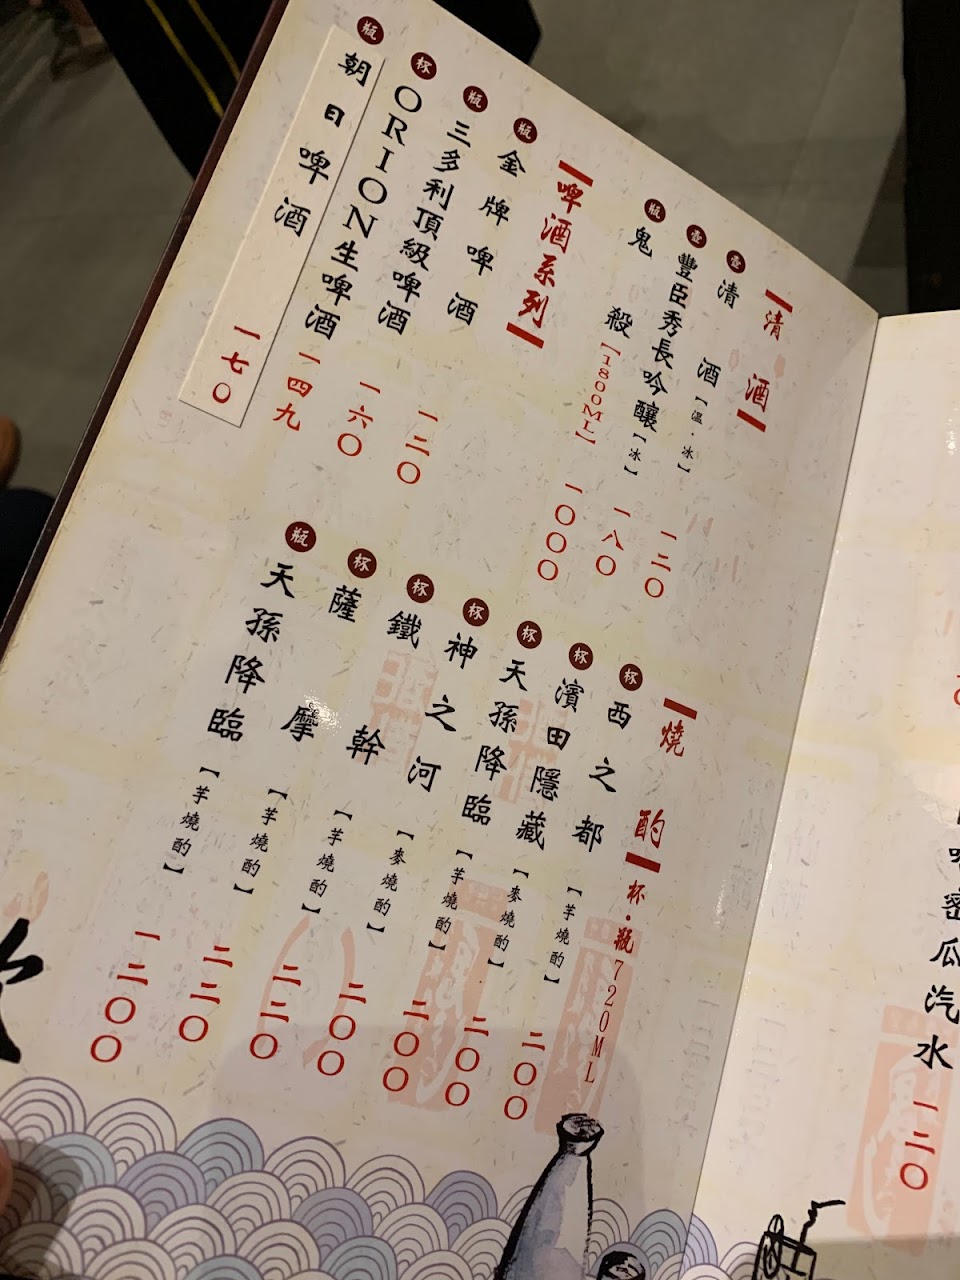 清酒
壺 清酒【溫．冰】 一二〇
壺 豐臣秀長吟釀【冰】 一八〇
瓶 鬼殺【1800ML】 一〇〇〇
啤酒系列
瓶 金牌啤酒 一二〇
瓶 三多利頂級啤酒 一六〇
杯 ORION生啤酒 一四九
瓶 朝日啤酒 一七〇
燒酌 杯．瓶720ML
杯 西之都【芋燒酌】 二〇〇
杯 濱田隱藏【麥燒酌】 二〇〇
杯 天孫降臨【芋燒酌】 二〇〇
杯 神之河【麥燒酌】 二〇〇
杯 鐵幹【芋燒酌】 二二〇
杯 薩摩【芋燒酌】 二二〇
瓶 天孫降臨【芋燒酌】 一二〇〇
密瓜汽水 一二〇